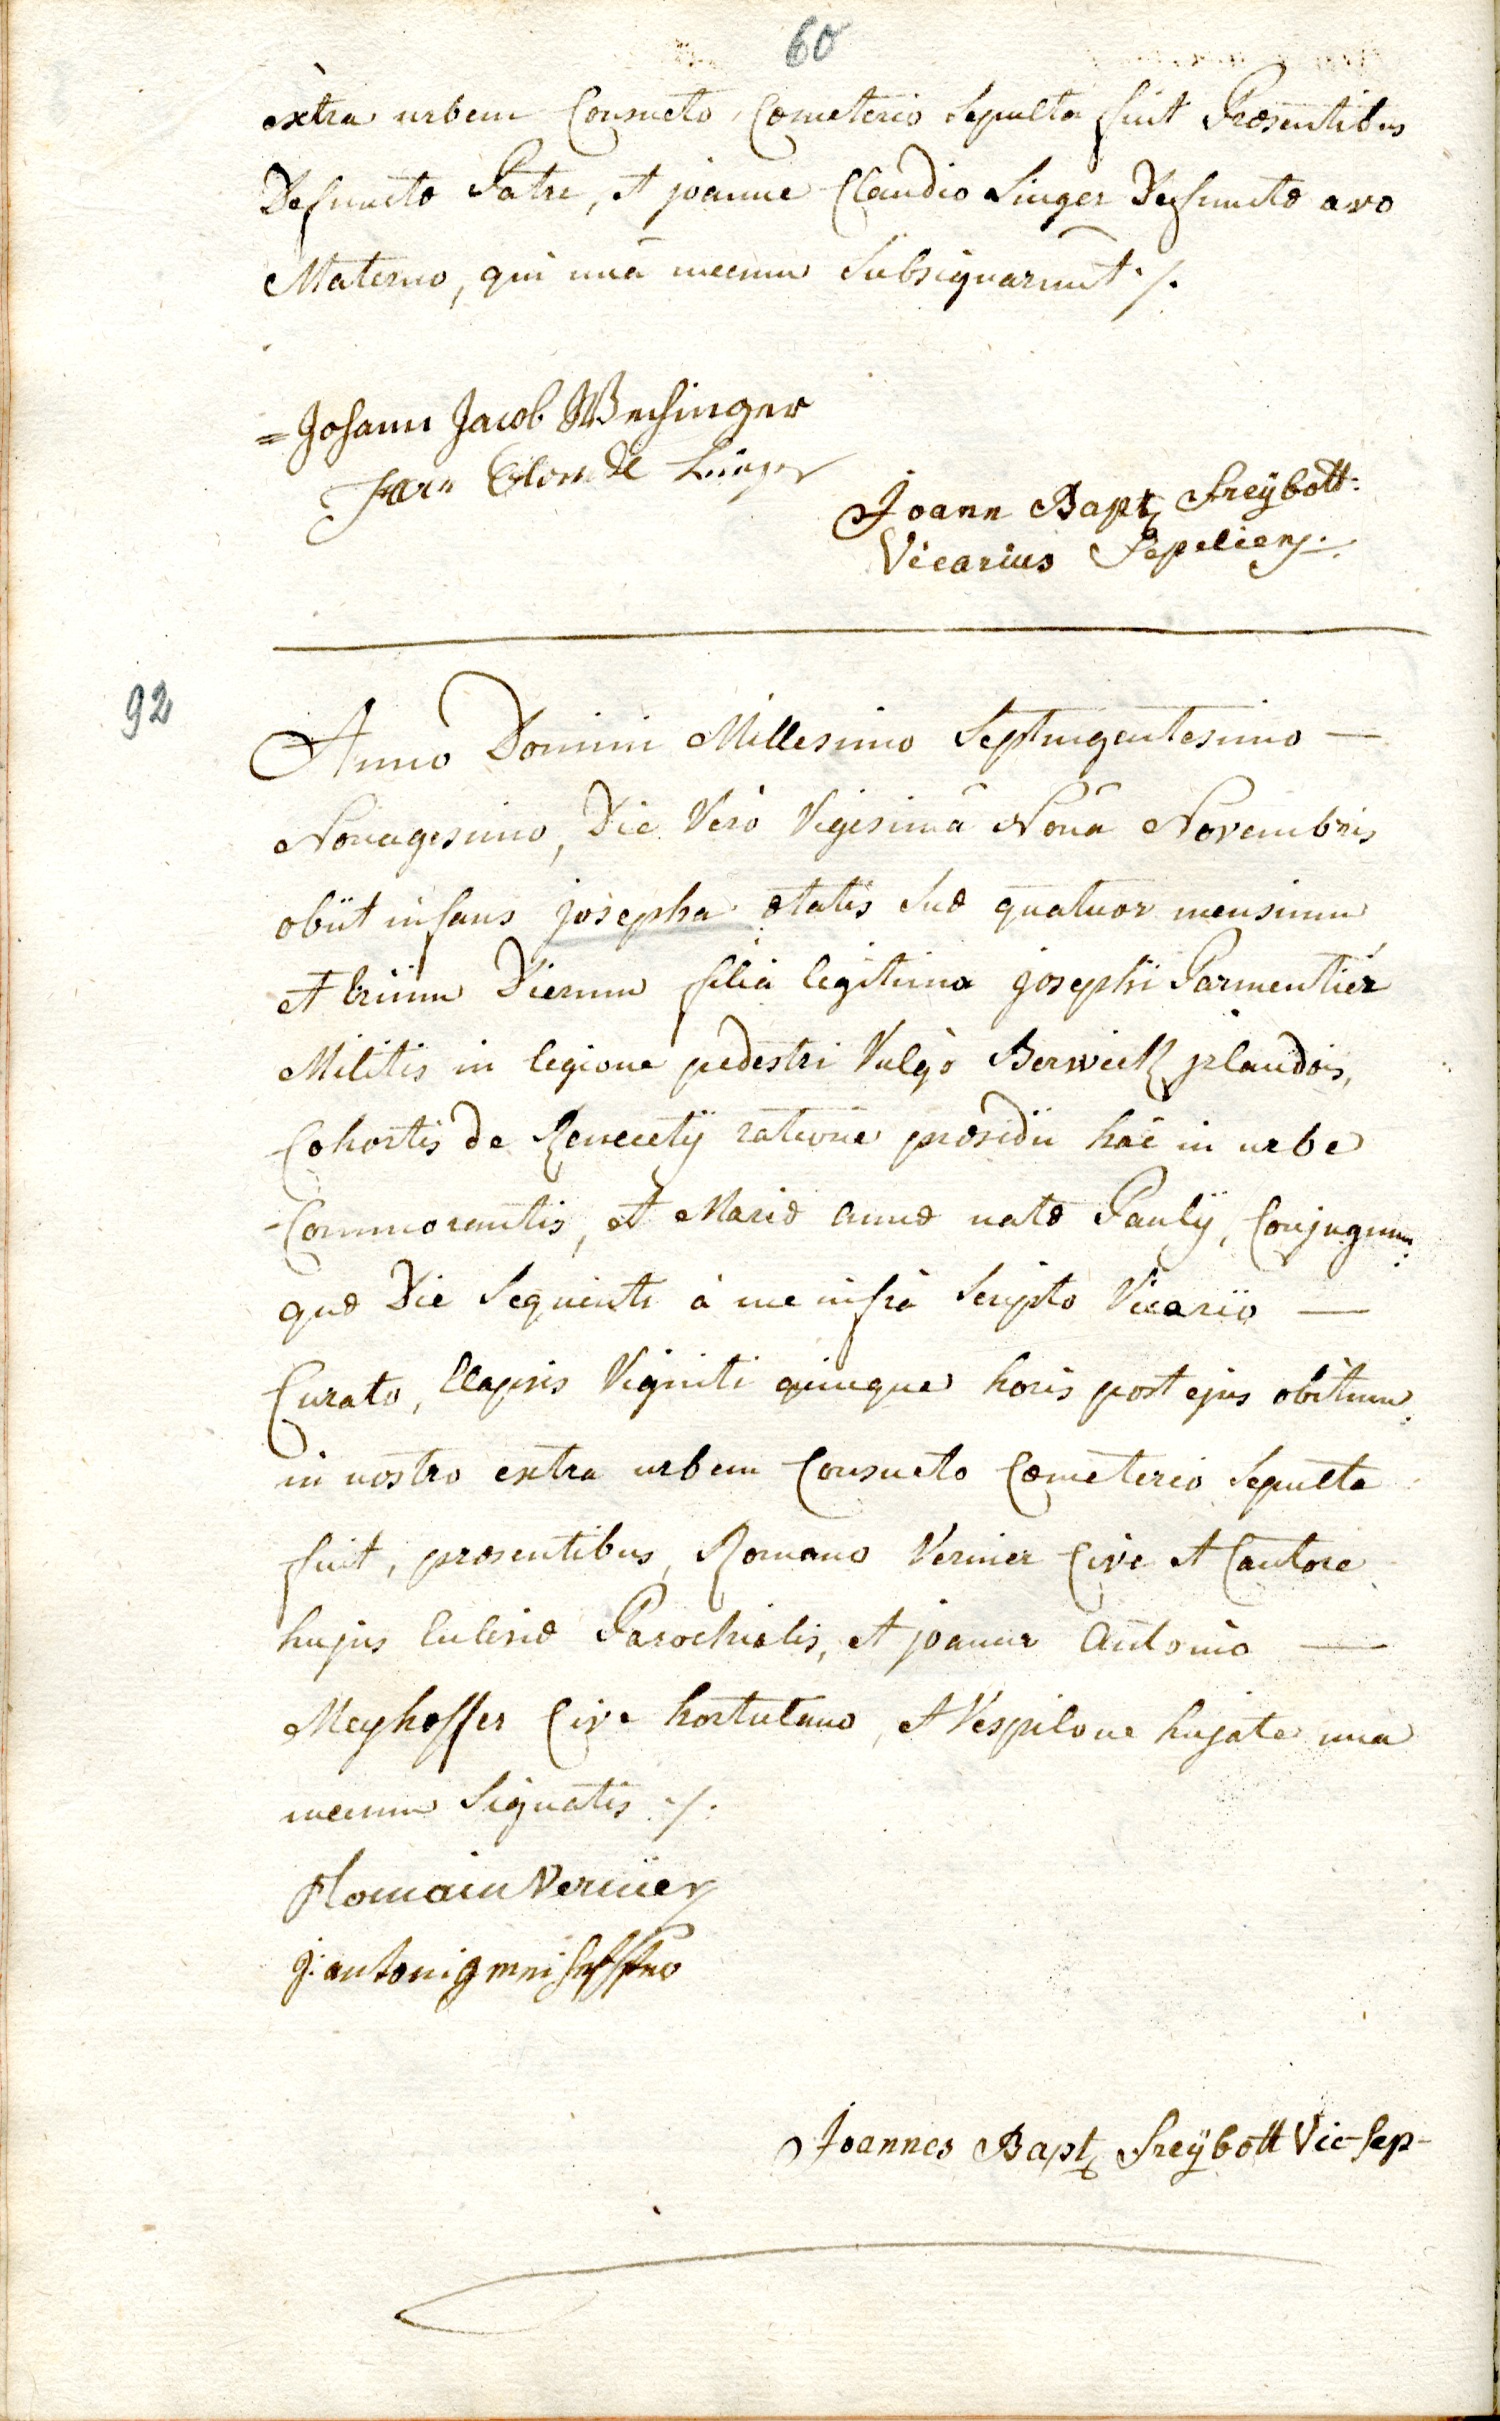 60
extra urbem Consueto Cœmeterio Sepulta fuit Præsentibus
Defunctæ Patre, et joanne Claudio Singer Defunctæ avo
Materno, qui unâ mecum Subsignarunt ./.
= Johann Jacob Wechinger
Joann Bapt Freÿbott:
Vicarius Sepeliens.
92
Anno Domini Millesimo Septingentesimo —
Nonagesimo, Die Verò Vigesimâ Nonâ Novembris
obiit infans josepha ætatis suæ quatuor mensium
et trium Dierum filia legitima josephi Parmentier
Militis in legione pedestri Vulgò Berwick jrlandois,
Cohortis de ratione præsidii hâc in urbe
Commorantis, et Mariæ annæ natæ Paulÿ, Conjugum:
quæ Die Sequenti à me infrà Scripto Vicario —
Curato, Elapsis Viginti quinque horis post ejus obitum,
in nostro extra urbem Consueto Cœmeterio Sepulta
fuit, præsentibus, Romano Vernier Cive et Cantore
hujus Eclesiæ Parochialis, et joanne Antonio —
Meyhoffer Cive hortulano, et Vespilone hujate una
mecum Signatis ./.
Romain Vernier
j: antoni meiheffer
Joannes Bapt Freÿbott Vic-sep-